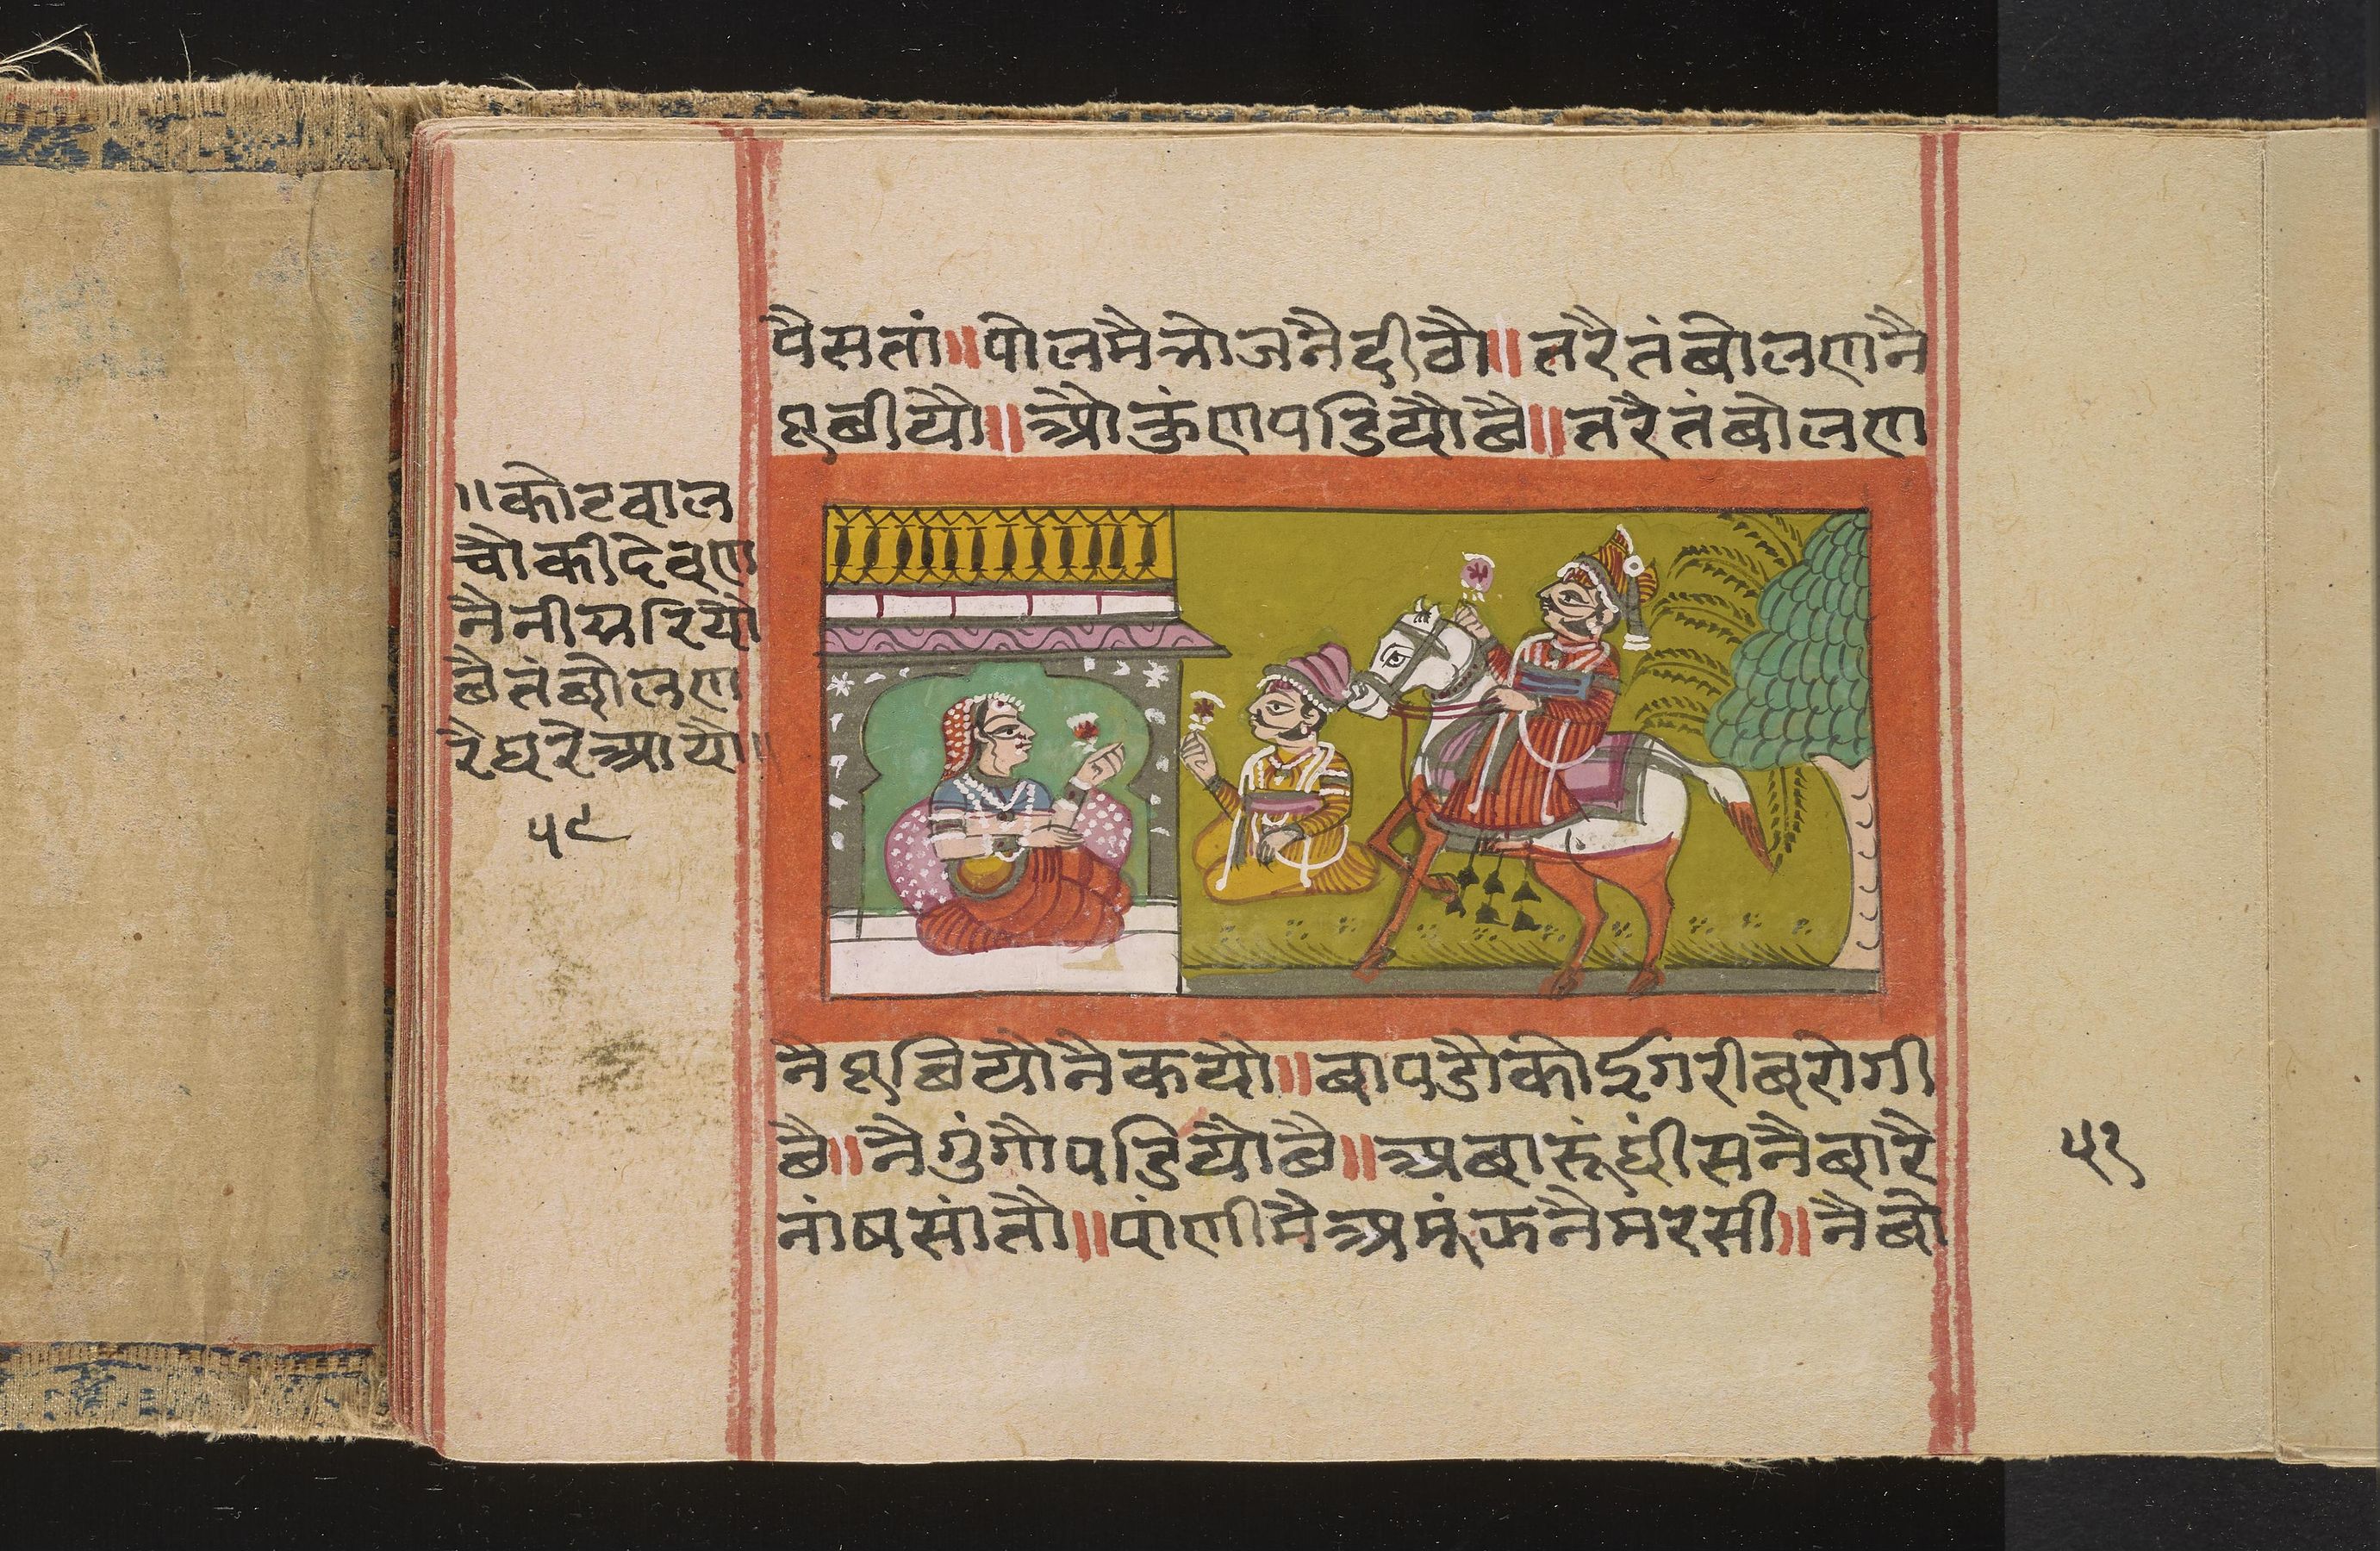 पैसतां॥पोलमैत्नोजनैदीवौ॥तरैतंबोलणनै
हाबीयौ॥औकुंणपडियौछै॥तरैतंबोलण
॥कोटवाल
चौकीदेवण
नैनीसरियौ
छैतंबोलण
रैघरेआयौ॥
५९
नैहाबियौनैकयौ॥बापडौकोईगरीबरोगी
छै॥नैगुंगौपडियौछै॥अबारूंघींसनैबारै
नांषसांतौ॥पांणीमैअमूंकनैमरसी॥नैबौ
५१